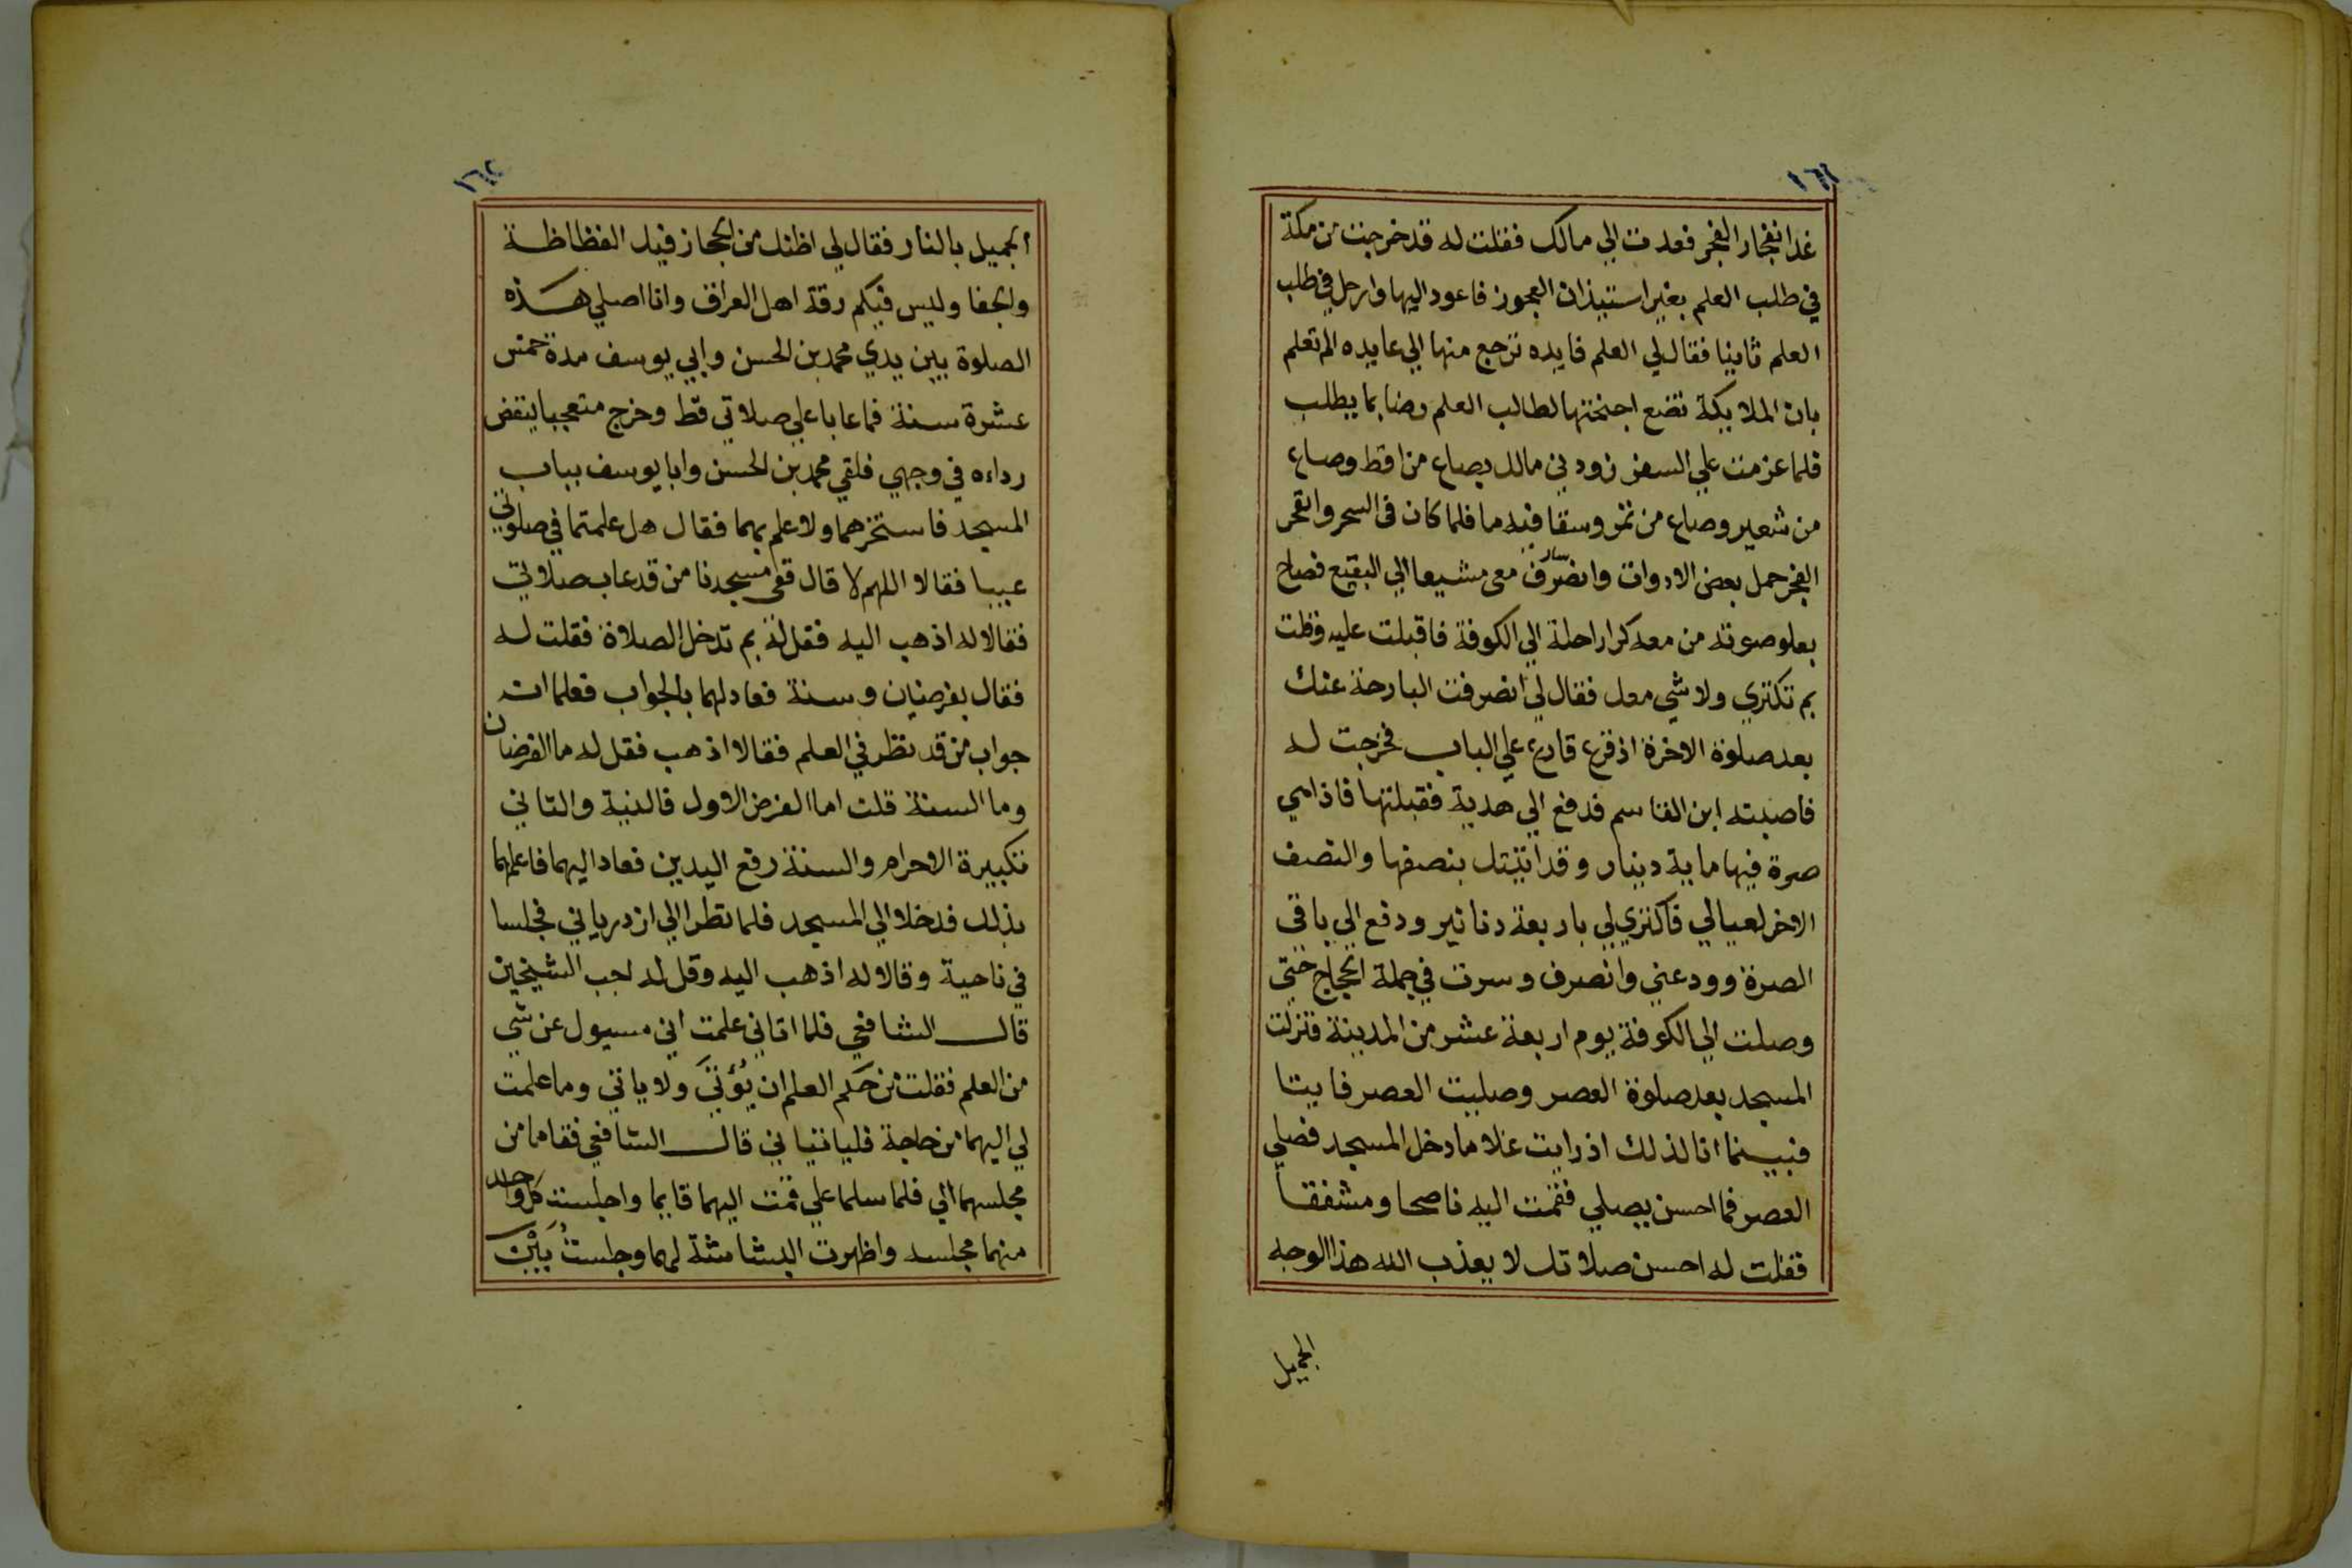 ١٦١
غدا انفجار الفجر فعدت الي مالك فقلت له قد خرجت من مكة
في طلب العلم بغير استيذان العجوز فاعود اليها وارحل في طلب
العلم ثانيا فقال لي العلم فايده ترجع منها الي عايده الم تعلم
بان الملايكة تضع اجنحتها لطالب العلم رضا بما يطلب
فلما عزمت علي السفر زودني مالك بصاع من اقط وصاع
من شعير وصاع من تمر وسقا فيه ما فلما كان في السحر وانفجر
الفجر حمل بعض الادوات وانصرف سار معي مشيعا الي البقيع فصاح
بعلو صوته من معه كرا راحلة الي الكوفة فاقبلت عليه وقلت
بم تكتري ولا شي معك فقال لي انصرفت البارحة عنك
بعد صلوة الاخرة اذ قرع قارع علي الباب فخرجت له
فاصبته ابن القاسم فدفع الي هدية فقبلتها فاذا هي
صرة فيها ماية دينار وقد اتيتك بنصفها والنصف
الاخر لعيالي فاكتري لي باربعة دنانير ودفع الي باقي
الصرة وودعني وانصرف وسرت في جملة الحجاج حتي
وصلت الي الكوفة يوم اربعة عشر من المدينة فنزلت
المسجد بعد صلوة العصر وصليت العصر فايتا
فبينما انا لذلك اذ رايت غلاما دخل المسجد فصلي
العصر فما احسن يصلي فقمت اليه ناصحا ومشفقا
فقلت له احسن صلاتك لا يعذب الله هذا الوجه
الجميل
١٦٢
الجميل بالنار فقال لي اظنك من الحجاز فيك الفظاظة
والجفا وليس فيكم رقة اهل العراق وانا اصلي هذه
الصلوة بين يدي محمد بن الحسن وابي يوسف مدة خمس
عشرة سنة فما عابا علي صلاتي قط وخرج متعجبا ينفض
رداءه في وجهي فلقي محمد بن الحسن وابا يوسف بباب
المسجد ولا علم بهما فقال هل علمتما في صلوتي
عيبا فقالا اللهم لا قال ففي مسجدنا من قد عاب صلاتي
فقالا له اذهب اليه فقل له بم تدخل الصلاة فقلت له
فقال بفرضيان وسنة فعاد لهما بالجواب فعلما انه
جواب من قد نظر في العلم فقالا اذهب فقل له ما الفرضان
وما السنة قلت اما الفرض الاول فالنية والثاني
تكبيرة الاحرام والسنة رفع اليدين فعاد اليهما فاعلمهما
بذلك فدخلا الي المسجد فلما نظرا الي ازدرياني فجلسا
في ناحية وقالا له اذهب اليه وقل له اجب الشيخين
قال الشافعي فلما اتاني علمت اني مسيول عن شي
من العلم فقلت من حكم العلم ان يُؤتَي ولا ياتي وما علمت
لي اليهما من حاجة فلياتياني قال الشافعي فقاما من
مجلسهما الي فلما سلما علي قمت اليهما قايما واجلست كل واحد
منهما مجلسه واظهرت البشاشة لهما وجلستُ بَيْنَ